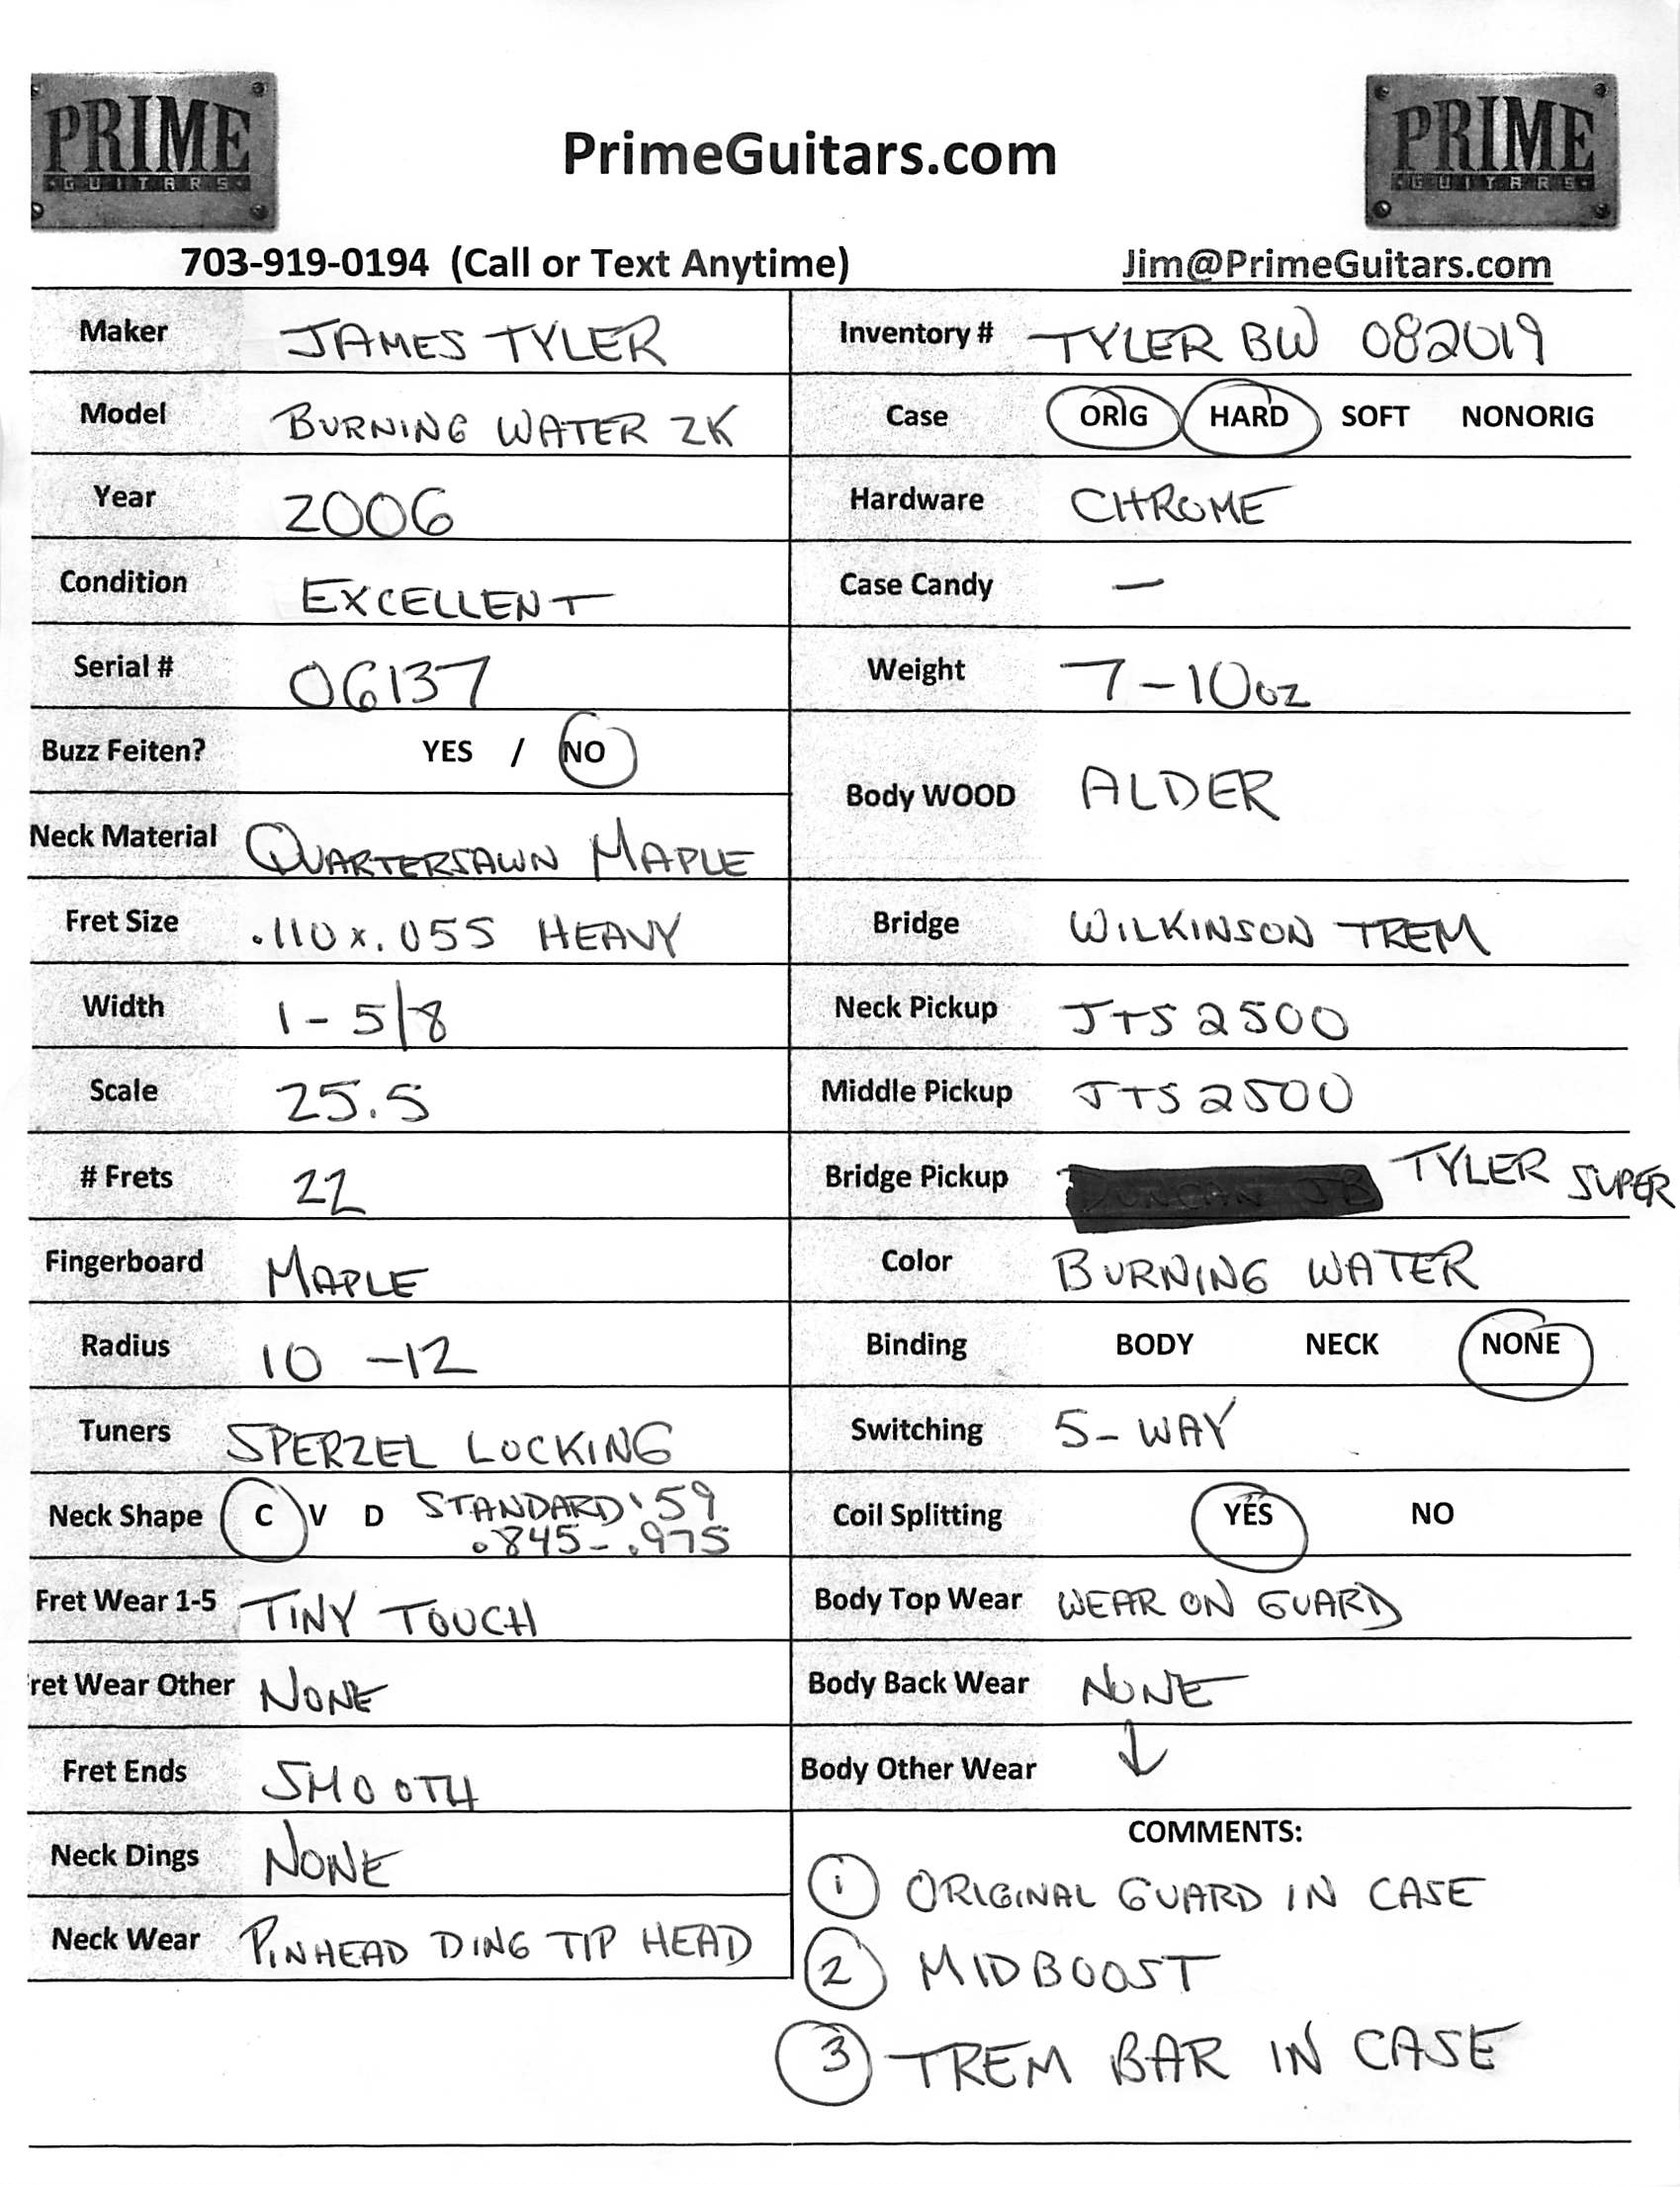 PRIME
GUITARS
PrimeGuitars.com
PRIME
GUITARS
703-919-0194 (Call or Text Anytime)
Jim@PrimeGuitars.com
Maker JAMES TYLER
Inventory # TYLER BW 082019
Model BURNING WATER 2K
Case ORIG HARD SOFT NONORIG
Year 2006
Hardware CHROME
Condition EXCELLENT
Case Candy —
Serial # 06137
Weight 7-10oz
Buzz Feiten? YES / NO
Body WOOD ALDER
Neck Material QUARTERSAWN MAPLE
Fret Size .110x.055 HEAVY
Bridge WILKINSON TREM
Width 1-5/8
Neck Pickup JTS 2500
Scale 25.5
Middle Pickup JTS 2500
# Frets 22
Bridge Pickup DUNCAN JB TYLER SUPER
Fingerboard MAPLE
Color BURNING WATER
Radius 10 -12
Binding BODY NECK NONE
Tuners SPERZEL LOCKING
Switching 5-WAY
Neck Shape C V D STANDARD '59
.845-.975
Coil Splitting YES NO
Fret Wear 1-5 TINY TOUCH
Body Top Wear WEAR ON GUARD
ret Wear Other NONE
Body Back Wear NONE
Fret Ends SMOOTH
Body Other Wear ↓
Neck Dings NONE
Neck Wear PINHEAD DING TIP HEAD
COMMENTS:
1 ORIGINAL GUARD IN CASE
2 MIDBOOST
3 TREM BAR IN CASE